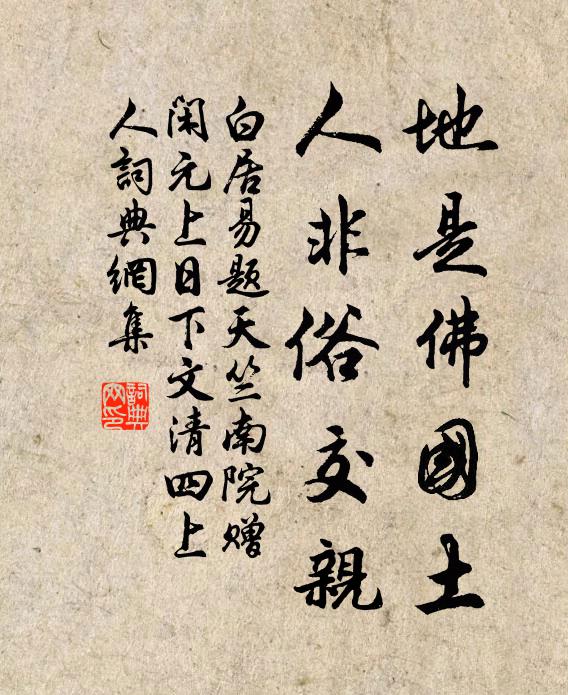 地是佛國土
人非俗交親
白居易题天竺南院赠
閑元上日下文清四上
人詞典網集
詞典網印